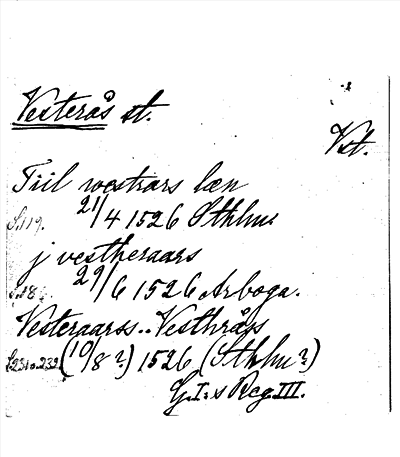 Vesterås st.
Vst.
Tiil westrars læn
S. 119. 21/4 1526 Sthlm.
j vestheraars
S. 18 29/6 1526 Arboga.
Vesteraarss.. Vesthråss
S. 231 o. 232 (10/8 ?) 1526 (Sthlm ?)
G. I:s Reg. III.